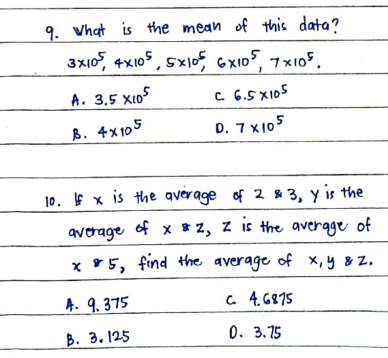 9. What is the mean of this data?
3x10⁵, 4x10⁵, 5x10⁵, 6x10⁵, 7x10⁵.
A. 3.5 x10⁵ C. 6.5x10⁵
B. 4x10⁵ D. 7x10⁵
10. If x is the average of 2 & 3, y is the
average of x & z, z is the average of
x & 5, find the average of x, y & z.
A. 9.375 C. 4.6875
B. 3.125 D. 3.75